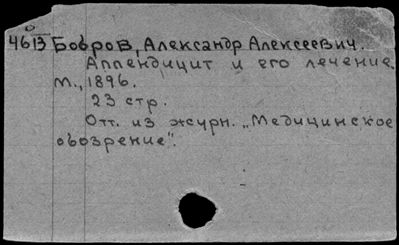 4613 Бобров, Александр Алексеевич.
Аппендицит и его лечение.
М., 1896.
23 стр.
Отт. из журн. „Медицинское
обозрение".